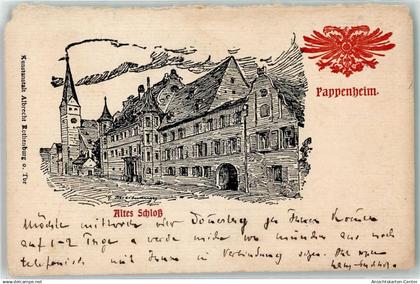 Kunstanstalt Albrecht Rothenburg o. Tbr
Pappenheim.
Altes Schloß
Möchte mittwoch oder Donnerstag zu Ihnen kommen
auf 1-2 Tage & werde mich von münchen aus noch
telefonisch mit Ihnen in Verbindung setzen.
Ansichtskarten-Center